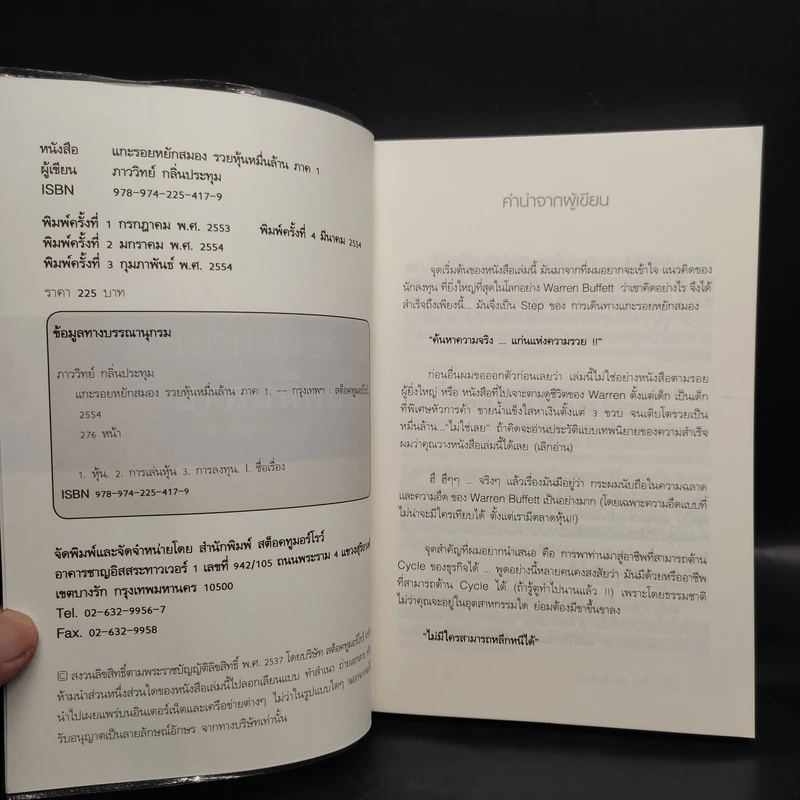 หนังสือ แกะรอยหยักสมอง รวยหุ้นหมื่นล้าน ภาค 1
ผู้เขียน ภาววิทย์ กลิ่นประทุม
ISBN 978-974-225-417-9
พิมพ์ครั้งที่ 1 กรกฎาคม พ.ศ. 2553 พิมพ์ครั้งที่ 4 มีนาคม 2554
พิมพ์ครั้งที่ 2 มกราคม พ.ศ. 2554
พิมพ์ครั้งที่ 3 กุมภาพันธ์ พ.ศ. 2554
ราคา 225 บาท
ข้อมูลทางบรรณานุกรม
ภาววิทย์ กลิ่นประทุม
แกะรอยหยักสมอง รวยหุ้นหมื่นล้าน ภาค 1. -- กรุงเทพฯ : สต็อคทูมอร์โรว์
2554
276 หน้า
1. หุ้น. 2. การเล่นหุ้น 3. การลงทุน. I. ชื่อเรื่อง
ISBN 978-974-225-417-9
จัดพิมพ์และจัดจำหน่ายโดย สำนักพิมพ์ สต็อคทูมอร์โรว์
อาคารชาญอิสสระทาวเวอร์ 1 เลขที่ 942/105 ถนนพระราม 4 แขวงสุริยวงศ์
เขตบางรัก กรุงเทพมหานคร 10500
Tel. 02-632-9956-7
Fax. 02-632-9958
© สงวนลิขสิทธิ์ตามพระราชบัญญัติลิขสิทธิ์ พ.ศ. 2537 โดยบริษัท สต็อคทูมอร์โรว์
ห้ามนำส่วนหนึ่งส่วนใดของหนังสือเล่มนี้ไปลอกเลียนแบบ ทำสำเนา ถ่ายเอกสาร
นำไปเผยแพร่บนอินเตอร์เน็ตและเครือข่ายต่างๆ ไม่ว่าในรูปแบบใดๆ นอกจากได้
รับอนุญาตเป็นลายลักษณ์อักษร จากทางบริษัทเท่านั้น
คำนำจากผู้เขียน
จุดเริ่มต้นของหนังสือเล่มนี้ มันมาจากที่ผมอยากจะเข้าใจ แนวคิดของ
นักลงทุน ที่ยิ่งใหญ่ที่สุดในโลกอย่าง Warren Buffett ว่าเขาคิดอย่างไร จึงได้
สำเร็จถึงเพียงนี้... มันจึงเป็น Step ของ การเดินทางแกะรอยหยักสมอง
"ค้นหาความจริง ... แก่นแห่งความรวย !!"
ก่อนอื่นผมขอออกตัวก่อนเลยว่า เล่มนี้ไม่ใช่อย่างหนังสือตามรอย
ผู้ยิ่งใหญ่ หรือ หนังสือที่ไปเจาะตามดูชีวิตของ Warren ตั้งแต่เด็ก เป็นเด็ก
ที่พิเศษหัวการค้า ขายน้ำแข็งใสหาเงินตั้งแต่ 3 ขวบ จนเติบโตรวยเป็น
หมื่นล้าน..."ไม่ใช่เลย" ถ้าคิดจะอ่านประวัติแบบเทพนิยายของความสำเร็จ
ผมว่าคุณวางหนังสือเล่มนี้ได้เลย (เลิกอ่าน)
ฮึ ฮึๆๆ ... จริงๆ แล้วเรื่องมันมีอยู่ว่า กระผมนับถือในความฉลาด
และความอึด ของ Warren Buffett เป็นอย่างมาก (โดยเฉพาะความอึดแบบที่
ไม่น่าจะมีใครเทียบได้ ตั้งแต่เรามีตลาดหุ้น!!)
จุดสำคัญที่ผมอยากนำเสนอ คือ การพาท่านมาสู่อาชีพที่สามารถต้าน
Cycle ของธุรกิจได้ ... พูดอย่างนี้หลายคนคงสงสัยว่า มันมีด้วยหรืออาชีพ
ที่สามารถต้าน Cycle ได้ (ถ้ารู้ตูทำไปนานแล้ว !!) เพราะโดยธรรมชาติ
ไม่ว่าคุณจะอยู่ในอุตสาหกรรมใด ย่อมต้องมีขาขึ้นขาลง
"ไม่มีใครสามารถหลีกหนีได้"